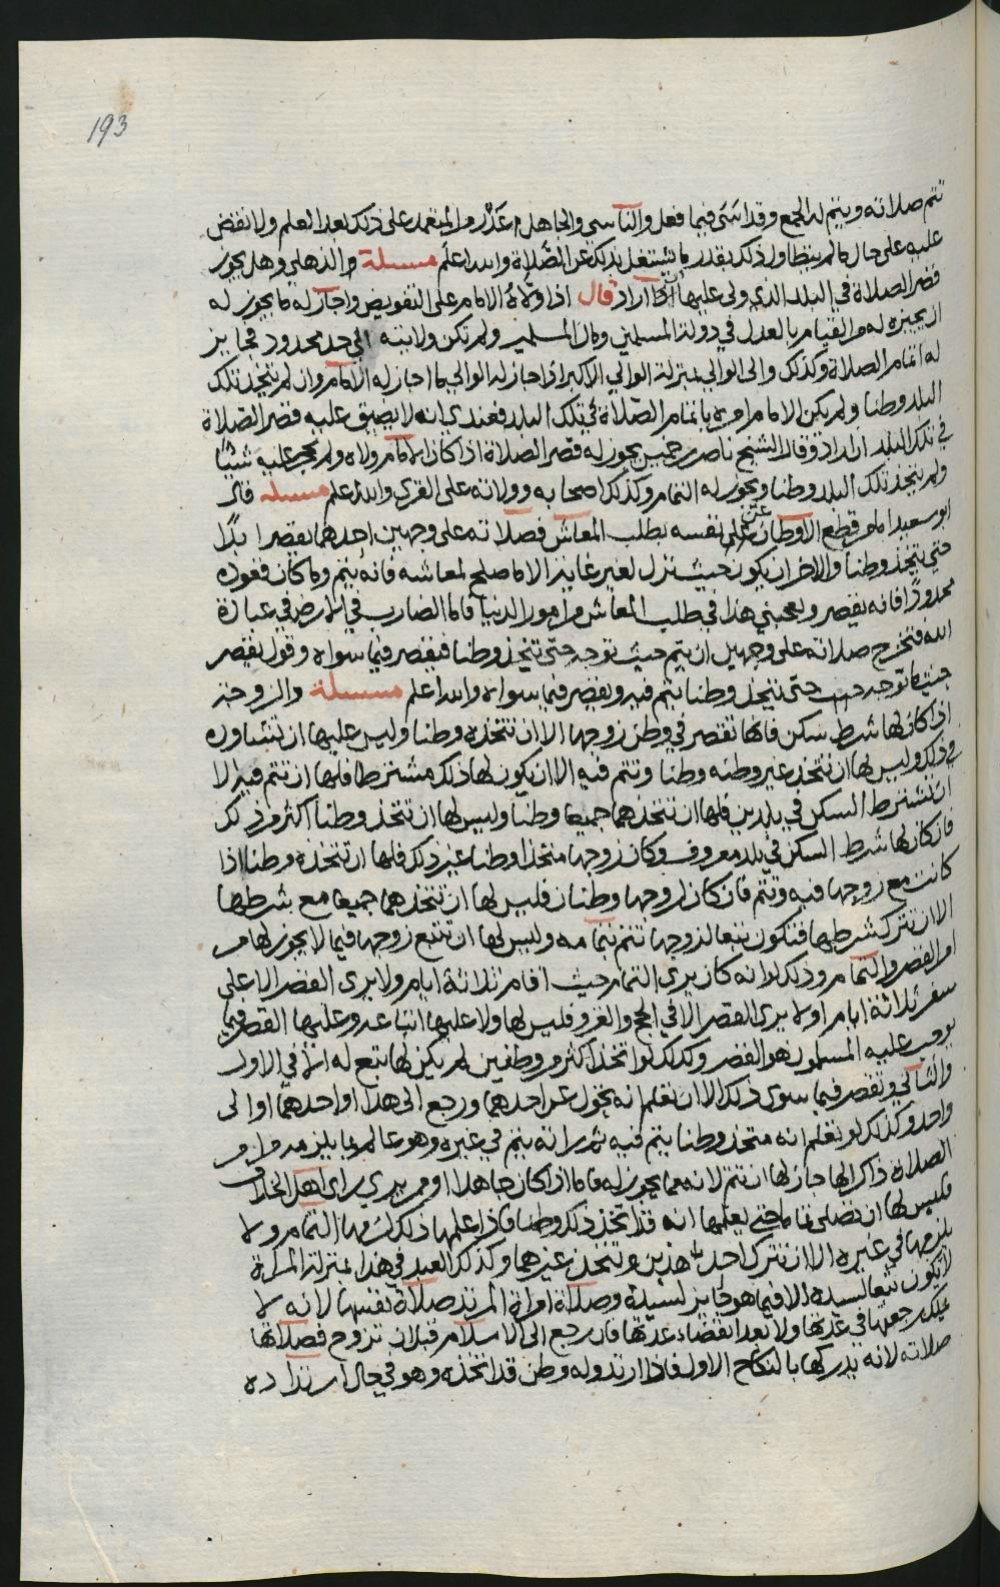 193
تتم صلاته ويتم له الجمع وقد اسى فيما فعل والناسي والجاهل اعذر من المتعمد على ذلك بعد العلم ولا نقض
عليه على حال ما لم يتطاول ذلك بقدر ما يشتغل بذلك عن الصلاة والله اعلم مسىلة من الذهلي وهل يجوز
قصر الصلاة في البلد الذي ولي عليها اذا اراد قال اذا ولاه الامام على التفويض واجاز له ما يجوز له
ان يجيزه له من القيام بالعدل في دولة المسلمين ومال المسلمين ولم تكن ولايته الى حد محدود فجايز
له اتمام الصلاة وكذلك والي الوالي بمنزلة الوالي الاكبر اذا جاز له الوالي ما اجاز له الامام وان لم يتخذ تلك
البلد وطنا ولم يكن الامام امره باتمام الصلاة في تلك البلد فعندي انه لا يضيق عليه قصر الصلاة
في تلك البلد ان اراد وقال الشيخ ناصر بن خميس يجوز له قصر الصلاة اذا كان الامام ولاه ولم يحجر عليه شيئا
ولم يتخذ تلك البلد وطنا ويجوز له التمام وكذلك اصحابه وولاته على القرى والله اعلم مسىله قال
ابو سعيد اما من قطع الاوطان عن نفسه بطلب المعاش فصلاته على وجهين احدهما يقصر ابدًا
حتى يتخذ وطنا والاخر ان يكون حيث نزل لغير غاية الا ما صلح لمعاشه فانه يتم وما كان قعوده
محدودًا فانه يقصر ويعجبني هذا في طلب المعاش من امور الدنيا فاما الضارب في الارض في عبادة
الله فتخرج صلاته على وجهين ان يتم حيث توجه حتى يتخذ وطنا فيقصر فيما سواه وقول يقصر
حيثما توجه حتى يتخذ وطنا يتم فيه ويقصر فيما سواه والله اعلم مسىلة والزوجة
اذا كان لها شرط سكن فانها تقصر في وطن زوجها الا ان تتخذه وطنا وليس عليها ان تشاوره
في ذلك وليس لها ان تتخذ غير وطنه وطنا وتتم فيه الا ان يكون لها ذلك مشترطا فلها ان تتم فيه الا
ان تشترط السكن في بلدين فلها ان تتخذهما جميعا وطنا وليس لها ان تتخذ وطنا اكثر من ذلك
فان كان لها شرط السكن في بلد معروف وكان زوجها متخذا وطنا غير ذلك فلها ان تتخذه وطنا اذا
كانت مع زوجها فيه وتتم فان كان لزوجها وطنان فليس لها ان تتخذهما جميعا مع شرطها
الا ان تترك شرطها فتكون تبعا لزوجها تتم بتمامه وليس لها ان تتبع زوجها فيما لا يجوز لها من
امر القصر والتمام وذلك لو انه كان يرى التمام حيث اقام ثلاثة ايام ولا يرى القصر الا على
سفر ثلاثة ايام او لا يرى القصر الا في الحج والغزو فليس لها ولا عليها اتباعه وعليها القصر فيما
يوجب عليه المسلمون هو القصر وكذلك لو اتخذ اكثر من وطنين لم يكن لها تتبع له الا في الاول
والثاني وتقصر فيما سوى ذلك الا ان تعلم انه تحول عن احدهما ورجع الى هذا او احدهما او الى
واحد وكذلك لو تعلم انه متخذ وطنا يتم فيه ثم راته يتم في غيره وهو عالم بما يلزمه من امر
الصلاة ذاكرا لها جاز لها ان تتم لانه مما يجوز له فاما اذا كان جاهلا او ممن يرى براي اهل الخلاف
فليس لها ان تصلي تماما حتى يعلمها انه قد اتخذ ذلك وطنا فاذا علمها ذلك لزمها التمام ولا
يلزمها في غيره الا ان تترك احد هذين وتتخذ غيرهما وكذلك العبد في هذا بمنزلة المراة
لا يكون تبعا لسيده الا فيما هو جايز لسيده وصلاة امراة المرتد صلاة نفسها لانه لا
يملك رجعتها في عدتها ولا بعد انقضاء عدتها فان رجع الى الاسلام قبل ان تزوج فصلاتها
صلاته لانه يدركها بالنكاح الاول فاذا ارتد وله وطن قد اتخذه وهو في حال ارتداده